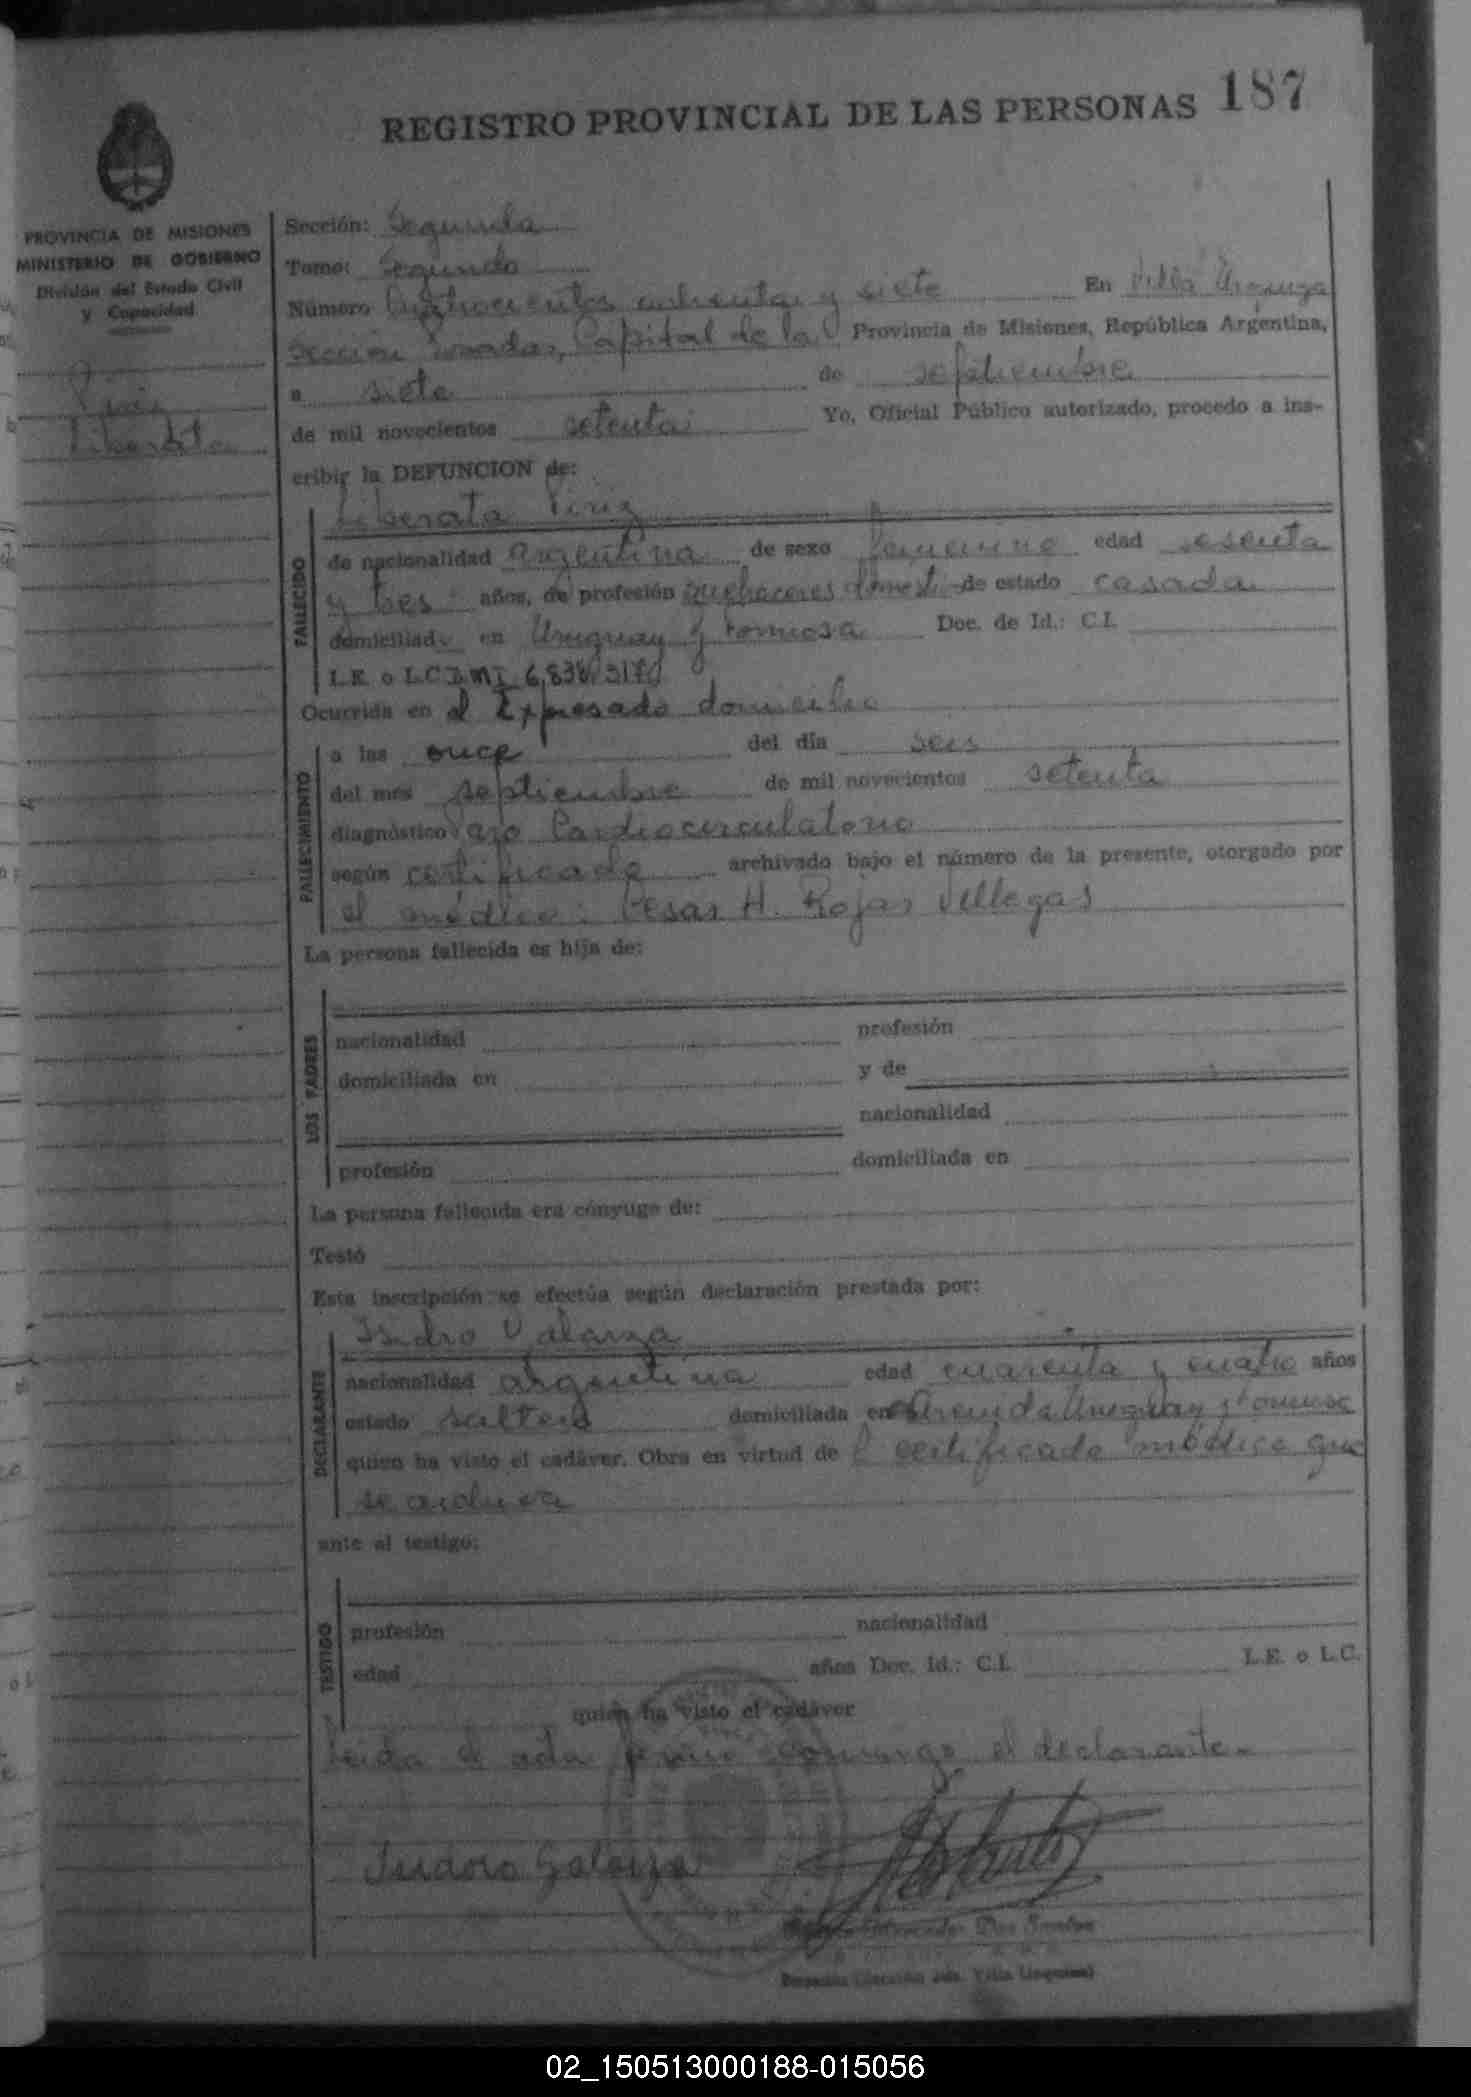 REGISTRO PROVINCIAL DE LAS PERSONAS 187
PROVINCIA DE MISIONES
MINISTERIO DE GOBIERNO
División del Estado Civil
y Capacidad
Piriz
Liberata
Sección: Segunda
Tomo: Segundo
Número Cuatrocientos ochenta y siete En Villa Urquiza
Sección Posadas, Capital de la Provincia de Misiones, República Argentina,
a siete de septiembre
de mil novecientos setenta Yo, Oficial Público autorizado, procedo a ins-
cribir la DEFUNCION de:
Liberata Piriz
FALLECIDO
de nacionalidad argentina de sexo femenino edad sesenta
y tres años, de profesión quehaceres domesti- de estado casada
domiciliada en Uruguay y Formosa Doc. de Id.: C.I.
L.E. o L.C. D.M.I. 6.838.
Ocurrida en el Expresado domicilio
FALLECIMIENTO
a las once del día seis
del mes septiembre de mil novecientos setenta
diagnóstico Paro Cardiocirculatorio
según certificado archivado bajo el número de la presente, otorgado por
el médico: Cesar H. Rojas Villegas
La persona fallecida es hija de:
LOS PADRES
nacionalidad profesión
domiciliada en y de
nacionalidad
profesión domiciliada en
La persona fallecida era cónyuge de:
Testó
Esta inscripción se efectúa según declaración prestada por:
Isidro Galarza
DECLARANTE
nacionalidad argentina edad cuarenta y cuatro años
estado soltero domiciliada en Avenida Uruguay y Formosa
quien ha visto el cadáver. Obra en virtud de l certificado médico que
se archiva
ante el testigo:
TESTIGO
profesión nacionalidad
edad años Doc. Id.: C.I. L.E. o L.C.
quien ha visto el cadáver
Leida el acta firma conmigo el declarante.-
Isidoro Galarza
Dos Santos
02_150513000188-015056